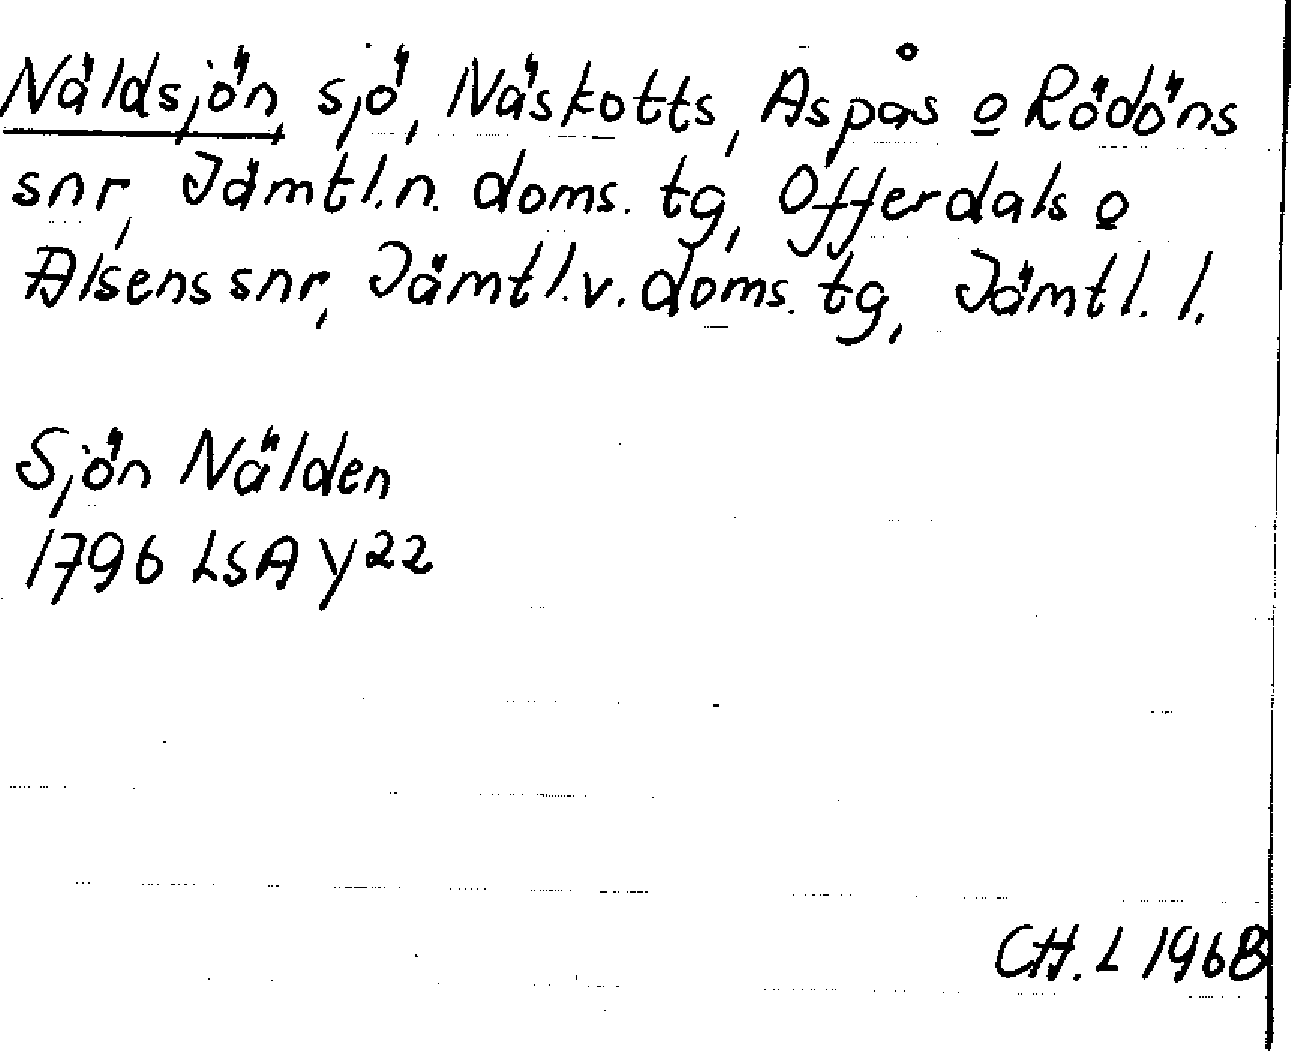 Näldsjön, sjö, Näskotts, Aspås o Rödöns
snr, Jämtl.n. doms. tg, Offerdals o
Alsens snr, Jämtl.v. doms. tg, Jämtl. l.
Sjön Nälden
1796 LSA Y22
CH.L 1968